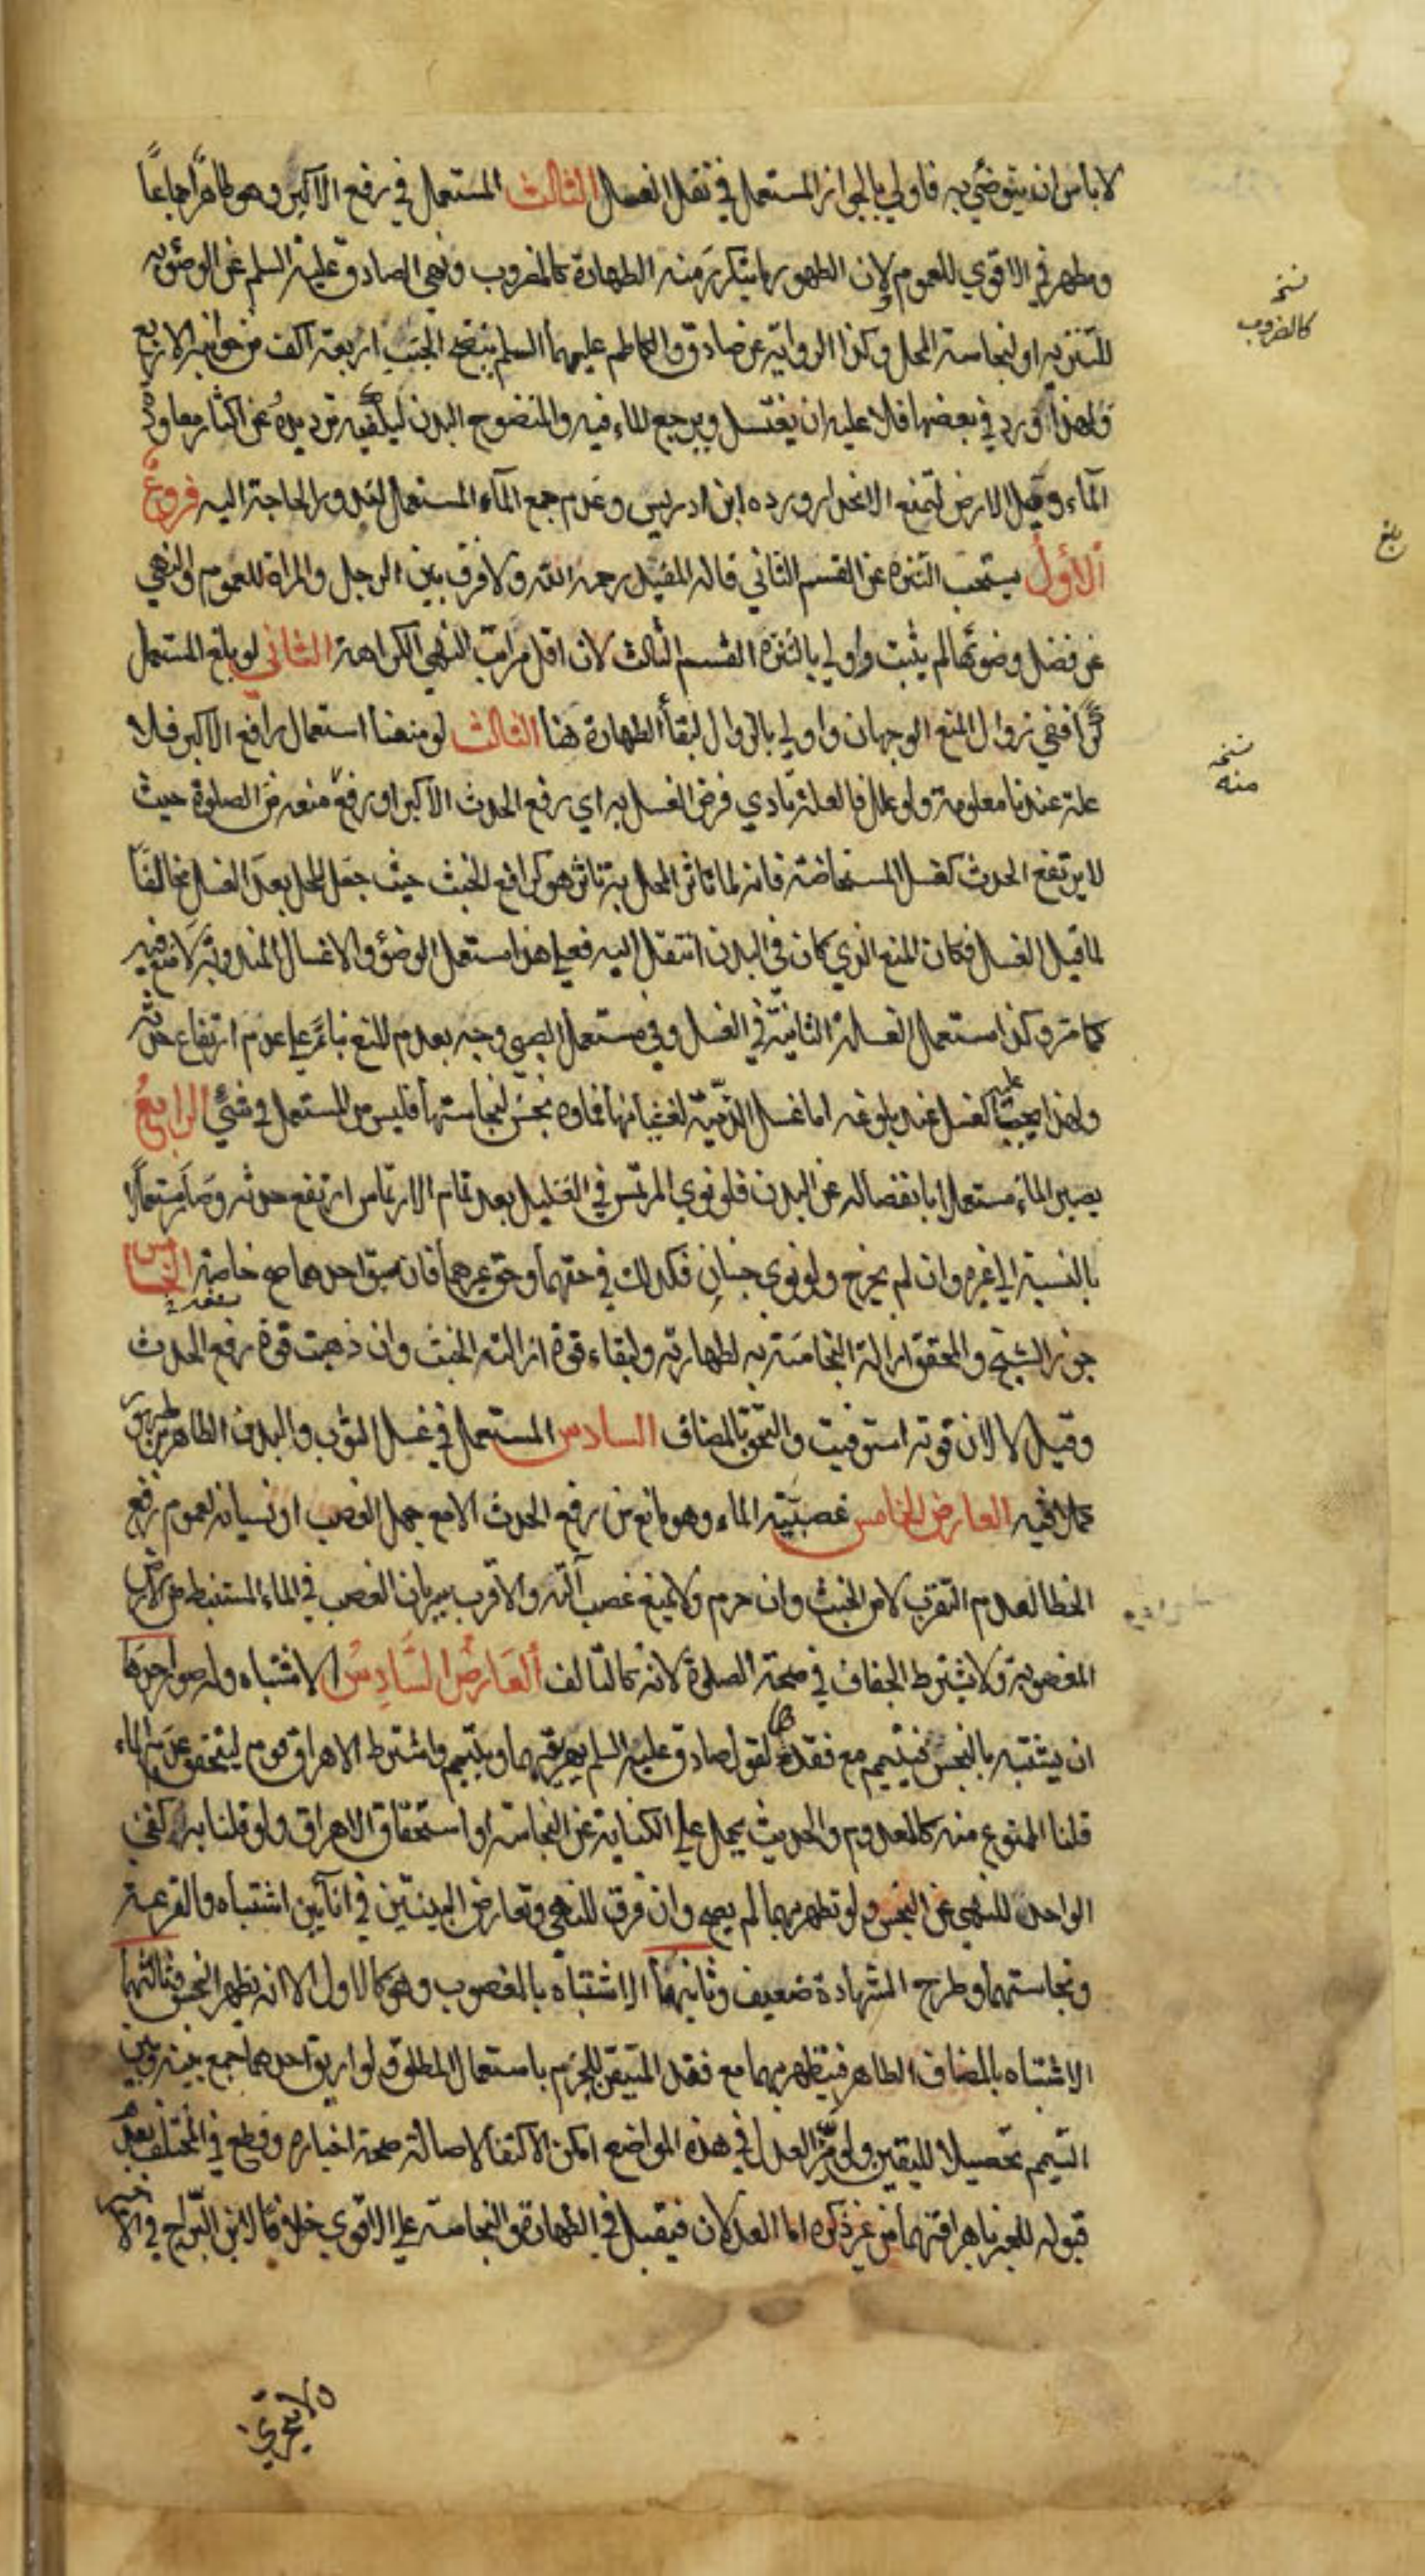 لا باس ان يتوضئ به فاولي بالجواز المستعمل في نفل الغسل الثالث المستعمل في رفع الاكبر وهو طاهر اجماعاً
ومطهر في الاقوي للعموم لان الطهور ما يتكرر منه الطهارة كالضروب ونهي الصادق عليه السلم عن الوضوء به
للتنزيه او لنجاسة المحل وكذا الرواية عن صادق والكاظم عليهما السلم بنضح الجنب اربعة اكف من جوانبه الاربع
ولهذا ورد في بعضها فلا عليه ان يغتسل ويرجع الماء فيه والمنضوح البدن ليكفيه ترديده عن اكثار معاودة
الماء وقيل الارض لتمنع الانحدار ورده ابن ادريس وعدم جمع الماء المستعمل لندور الحاجة اليه فروع
الاول يستحب التنزه عن القسم الثاني قاله المفيد رحمه الله ولا فرق بين الرجل والمراة للعموم والنهي
عن فضل وضوئها لم يثبت واولي بالتنزه القسم الثالث لان اقل مراتب النهي الكراهة الثاني لو بلغ المستعمل
كراً ففي زوال المنع الوجهان واولي بالزوال لبقاء الطهارة هنا الثالث لو منعنا استعمال رافع الاكبر فلا
علة عندنا معلومة ولو علل فالعلة تادي فرض الغسل به اي رفع الحدث الاكبر او رفع منعه من الصلوة حيث
لا يرتفع الحدث كغسل المستحاضة فانه لما تاثر المحل به تاثر هو كرافع الخبث حيث جعل المحل بعد الغسل مخالفاً
لما قبل الغسل فكان المنع الذي كان في البدن انتقل اليه فعلي هذا مستعمل الوضوء والاغسال المندوبة لا منع فيه
كما مر وكذا مستعمل الغسلة الثانية في الغسل وفي مستعمل الصبي وجه بعدم المنع بناءً علي عدم ارتفاع حدثه
ولهذا يجب عليه الغسل عند بلوغه اما غسل الذمية لغشيانها فماؤه نجس لنجاستها فليس من المستعمل في شئ الرابع
يصير الماء مستعملا بانفصاله عن البدن فلو نوي المرتمس في القليل بعد تمام الارتماس ارتفع حدثه وصار مستعملا
بالنسبة الي غيره وان لم يخرج ولو نوي جنبان فكذلك في حقهما وحق غيرهما فان سبق احدهما صح خاصة الخامس
جوز الشيخ والمحقق ازالة النجاسة به لطهارته ولبقاء قوة ازالته الخبث وان ذهبت قوة رفع الحدث
وقيل لا لان قوته استوفيت والتحق بالمضاف السادس المستعمل في غسل الثوب والبدن الطاهرين
عمل فيه العارض الخامس غصبية الماء وهو مانع من رفع الحدث الا مع جهل الغصب او نسيانه لعموم رفع
الخطا لعدم التقرب لا من الخبث وان حرم ولا يمنع غصب آلته والاقرب سريان الغصب في الماء المستنبط من الارض
المغصوبة ولا يشترط الجفاف في صحة الصلوة لانه كالتالف العارض السادس الاشتباه وله صور احدها
ان يشتبه بالنجس فيتيمم مع فقد غيرهما لقول الصادق عليه السلم يهريقهما ويتيمم واشترط الاهراق قوم ليتحقق عدم الماء
قلنا الممنوع منه كالمعدوم والحديث يحمل علي الكناية عن النجاسة او استحقاق الاهراق ولو قلنا به كفي
الواحد للنهي عن النجس ولو تطهر بهما لم يصح وان فرق للنهي وتعارض البينتين في انائين اشتباه والقرعة
ونجاستهما وطرح الشهادة ضعيف وثانيها الاشتباه بالمغصوب وهو كالاول الا انه يطهر النجس وثالثها
الاشتباه بالمضاف الطاهر فيتطهر بهما مع فقد المتيقن للجزم باستعمال المطلق ولو اريق احدهما جمع بينه وبين
التيمم تحصيلا لليقين ولو ميز العدل في هذه المواضع امكن الاكتفا لاصالة صحة اخباره وقطع في المختلف بعدم
قبوله للخبر باهراقهما من غير ذكره اما العدلان فيقبل في الطهارة والنجاسة علي الاقوي خلافا لابن البراج في الاخير
ولا تحري
نسخه
كالضروب
بلغ
نسخه
منه